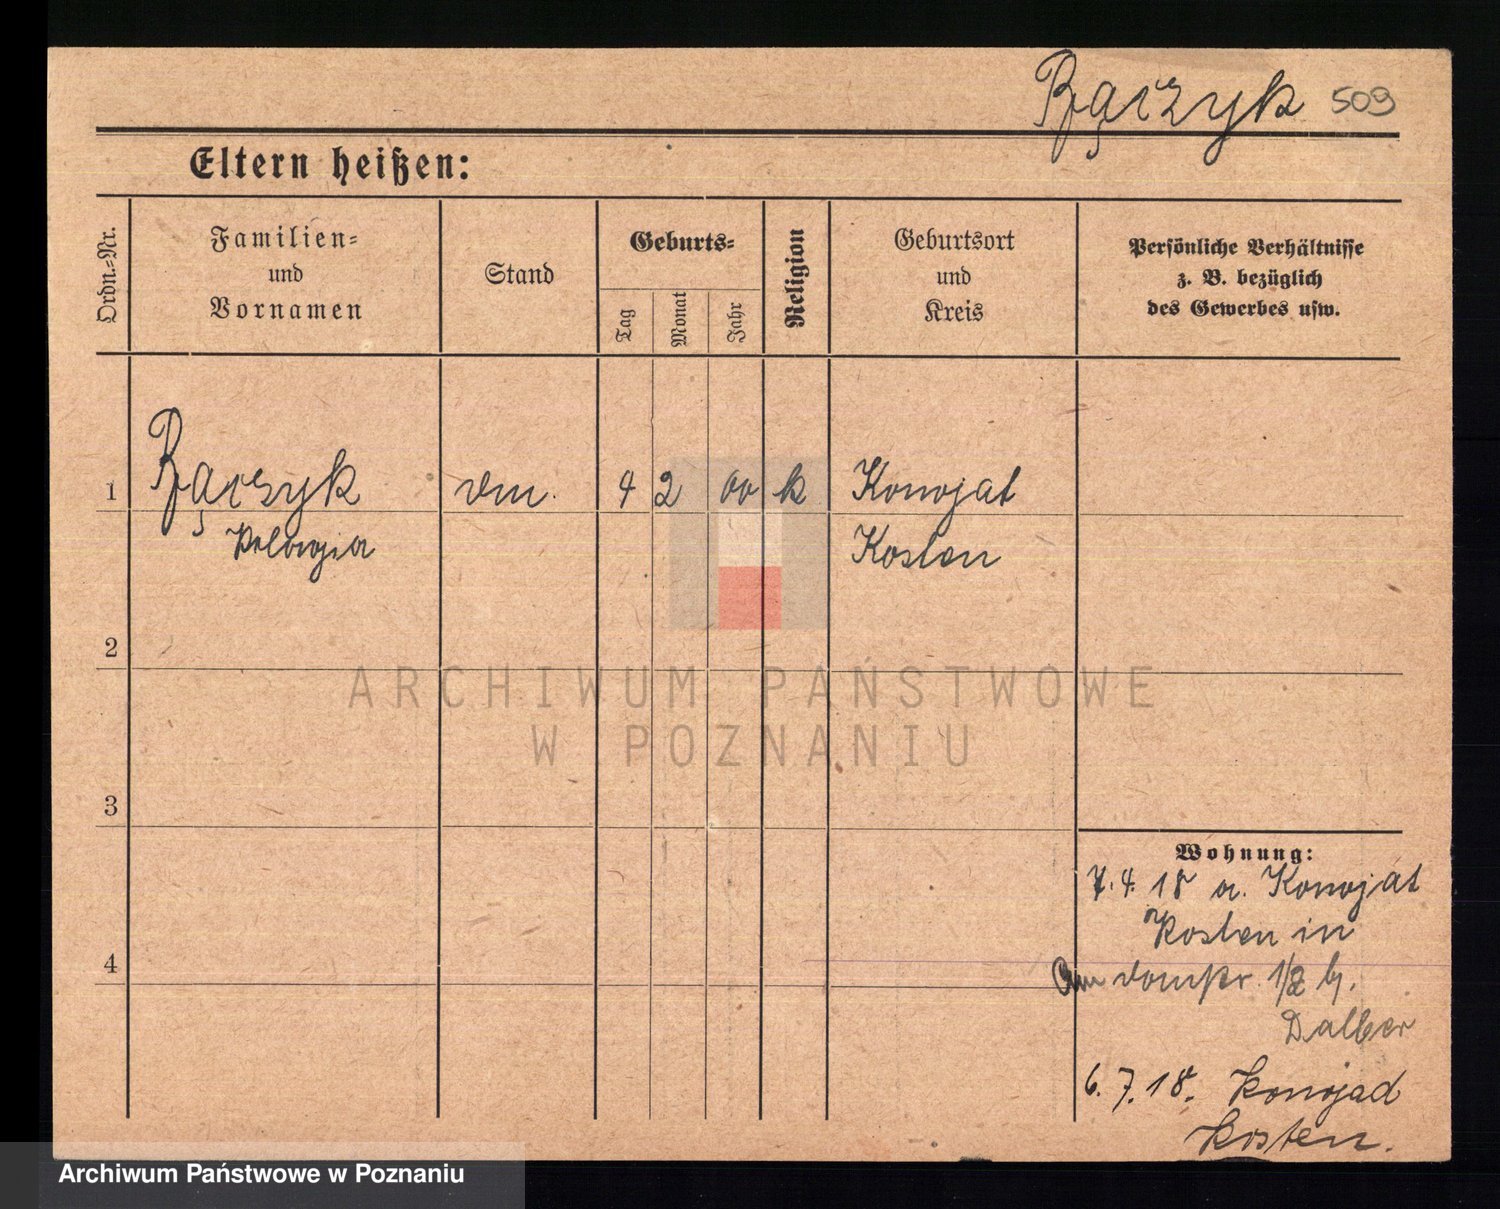 Bączyk 509
Eltern heißen:
Ordn.=Nr.
Familien=
und
Vornamen
Stand
Geburts=
Tag
Monat
Jahr
Religion
Geburtsort
und
Kreis
Persönliche Verhältnisse
z. B. bezüglich
des Gewerbes usw.
1 Bączyk 4 2 00 k Konojat
Pelagia Kosten
2
3
4
Wohnung:
7. 4. 18 a. Konojat
Kosten in
Am 1/2 b.
Dalber
6. 7. 18. Konojad
Kosten.
ARCHIWUM PAŃSTWOWE
W POZNANIU
Archiwum Państwowe w Poznaniu